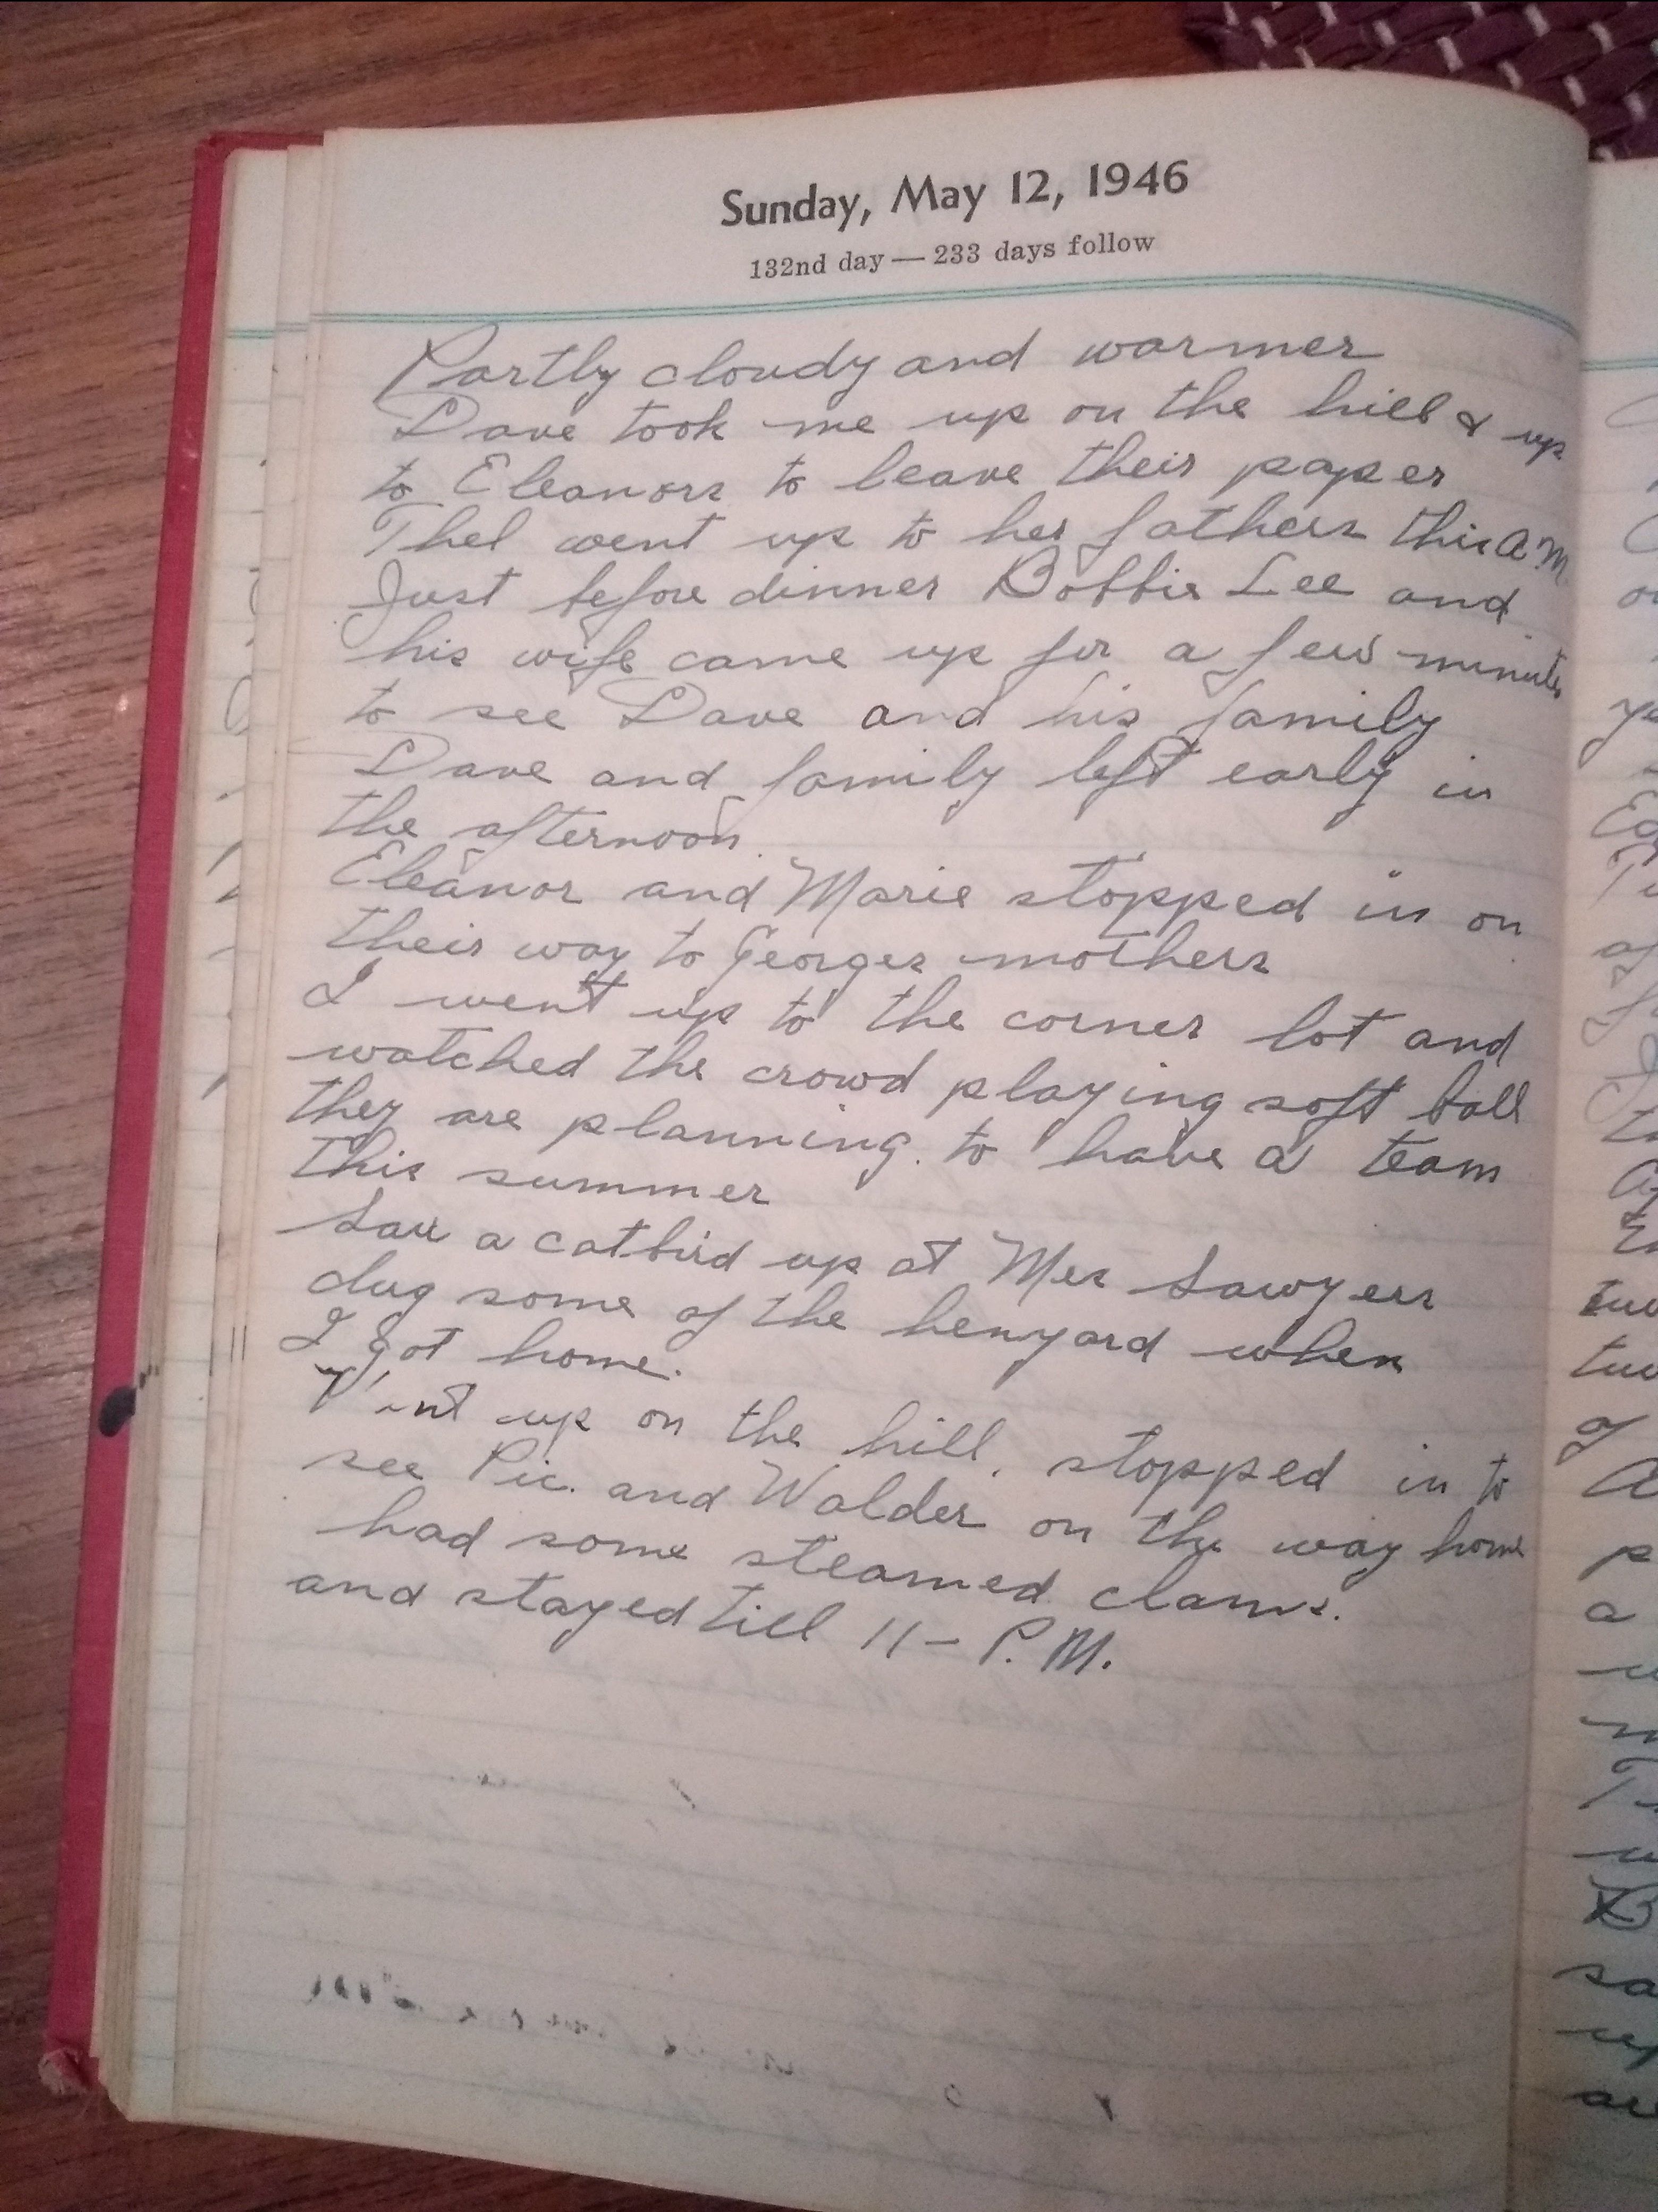 Sunday, May 12, 1946
132nd day — 233 days follow
Partly cloudy and warmer
Dave took me up on the hill & up
to Eleanors to leave their paper
Thel went up to her fathers this A.M.
Just before dinner Bobbie Lee and
his wife came up for a few minutes
to see Dave and his family
Dave and family left early in
the afternoon.
Eleanor and Marie stopped in on
their way to Georges mothers
I went up to the corner lot and
watched the crowd playing soft ball
they are planning to have a team
this summer
Saw a catbird up at Mrs Sawyers
dug some of the henyard when
I got home.
Went up on the hill, stopped in to
see Pic. and Walder on the way home
had some steamed clams.
and stayed till 11 - P.M.